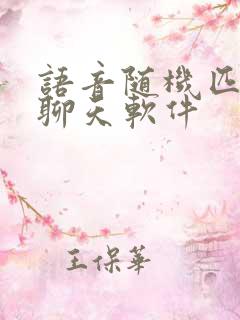 語音随機匹
聊天軟件
王保華